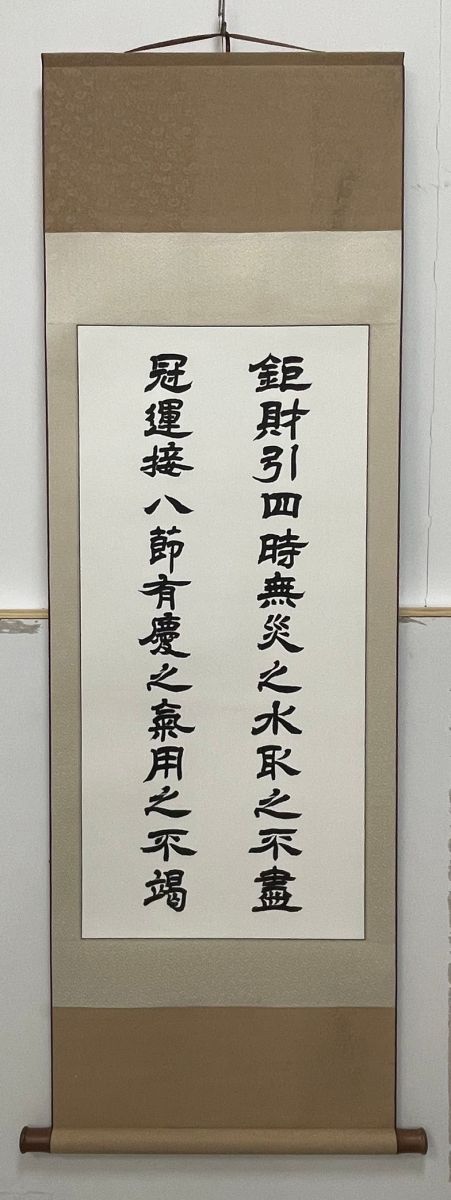 鉅財引四時無災之水取之不盡
冠運接八節有慶之氣用之不竭